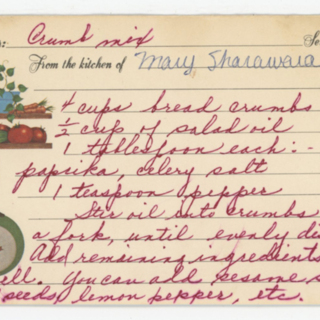 : Crumb mix Se
From the kitchen of Mary Sharawara
4 cups bread crumbs
1/2 cup of salad oil
1 tablespoon each:-
paprika, celery salt
1 teaspoon pepper
Stir oil into crumbs
a fork, until evenly di
Add remaining ingredients
ell. You can add sesame s
seeds, lemon pepper, etc.